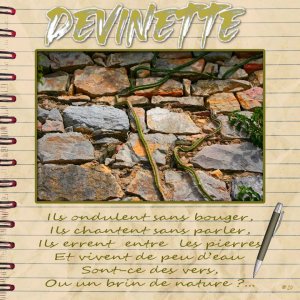 DEVINETTE
Ils ondulent sans bouger,
Ils chantent sans parler,
Ils errent entre les pierres
Et vivent de peu d'eau
Sont-ce des vers,
Ou un brin de nature ?...